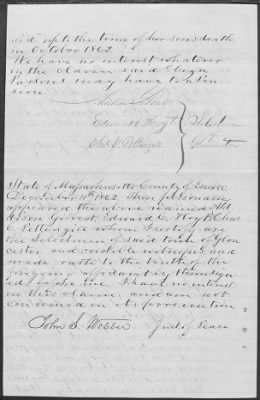 and up to the time of her sons death
in October 1862.
We have no interest whatever
in the claim said
Parsons may have to a Pen
sion.
Edward C. Hoyt } Selectmen
Chas C. Pettengill Gloucester
State of Massachusetts County of Essex
December 11th 1862, then personally
appeared the above named
Gilbert, Edward C. Hoyt & Chas
C. Pettengill whom I certify are
the Selectmen of said town of Glou
cester and credible witnesses and
made oath to the truth of the
foregoing affidavit by them sign
ed before me. I have no interest
in this claim, and am not
concerned in its prosecution
John S. Webber Just of Peace